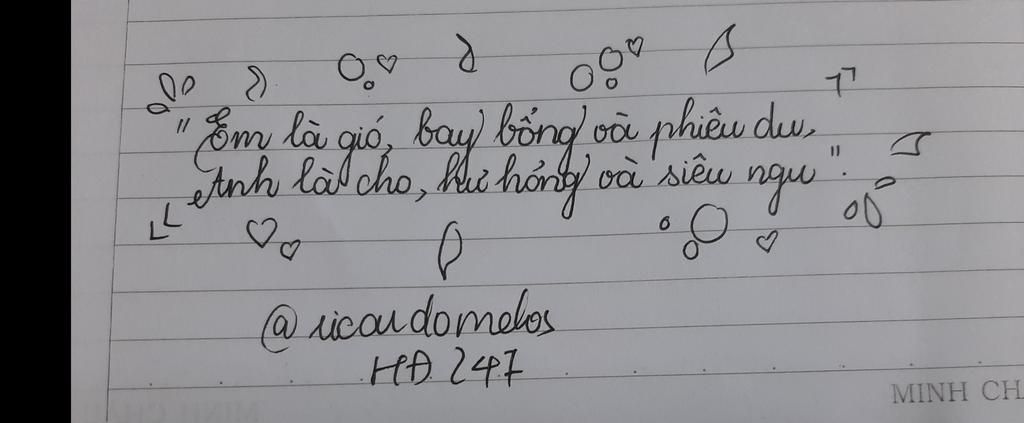 "Em là gió, bay bổng và phiêu du,
Anh là cho, hư hỏng và siêu ngu".
@ricardomelos
HĐ 247
MINH CH